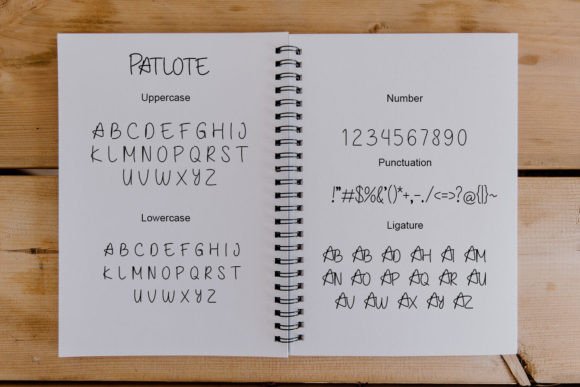 PATLOTE
Uppercase
ABCDEFGHIJ
KLMNOPQRST
UVWXYZ
Lowercase
ABCDEFGHIJ
KLMNOPQRST
UVWXYZ
Number
1234567890
Punctuation
!"#$%&'()*+,-./<=>?@{|}~
Ligature
AB AB AD AH AI AM
AN AO AP AQ AR AU
AV AW AX AY AZ